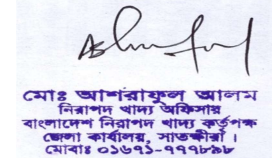 মোঃ আশরাফুল আলম
নিরাপদ খাদ্য অফিসার
বাংলাদেশ নিরাপদ খাদ্য কর্তৃপক্ষ
জেলা কার্যালয়, সাতক্ষীরা।
মোবাঃ ০১৬৭১-৭৭৭৮৯৮